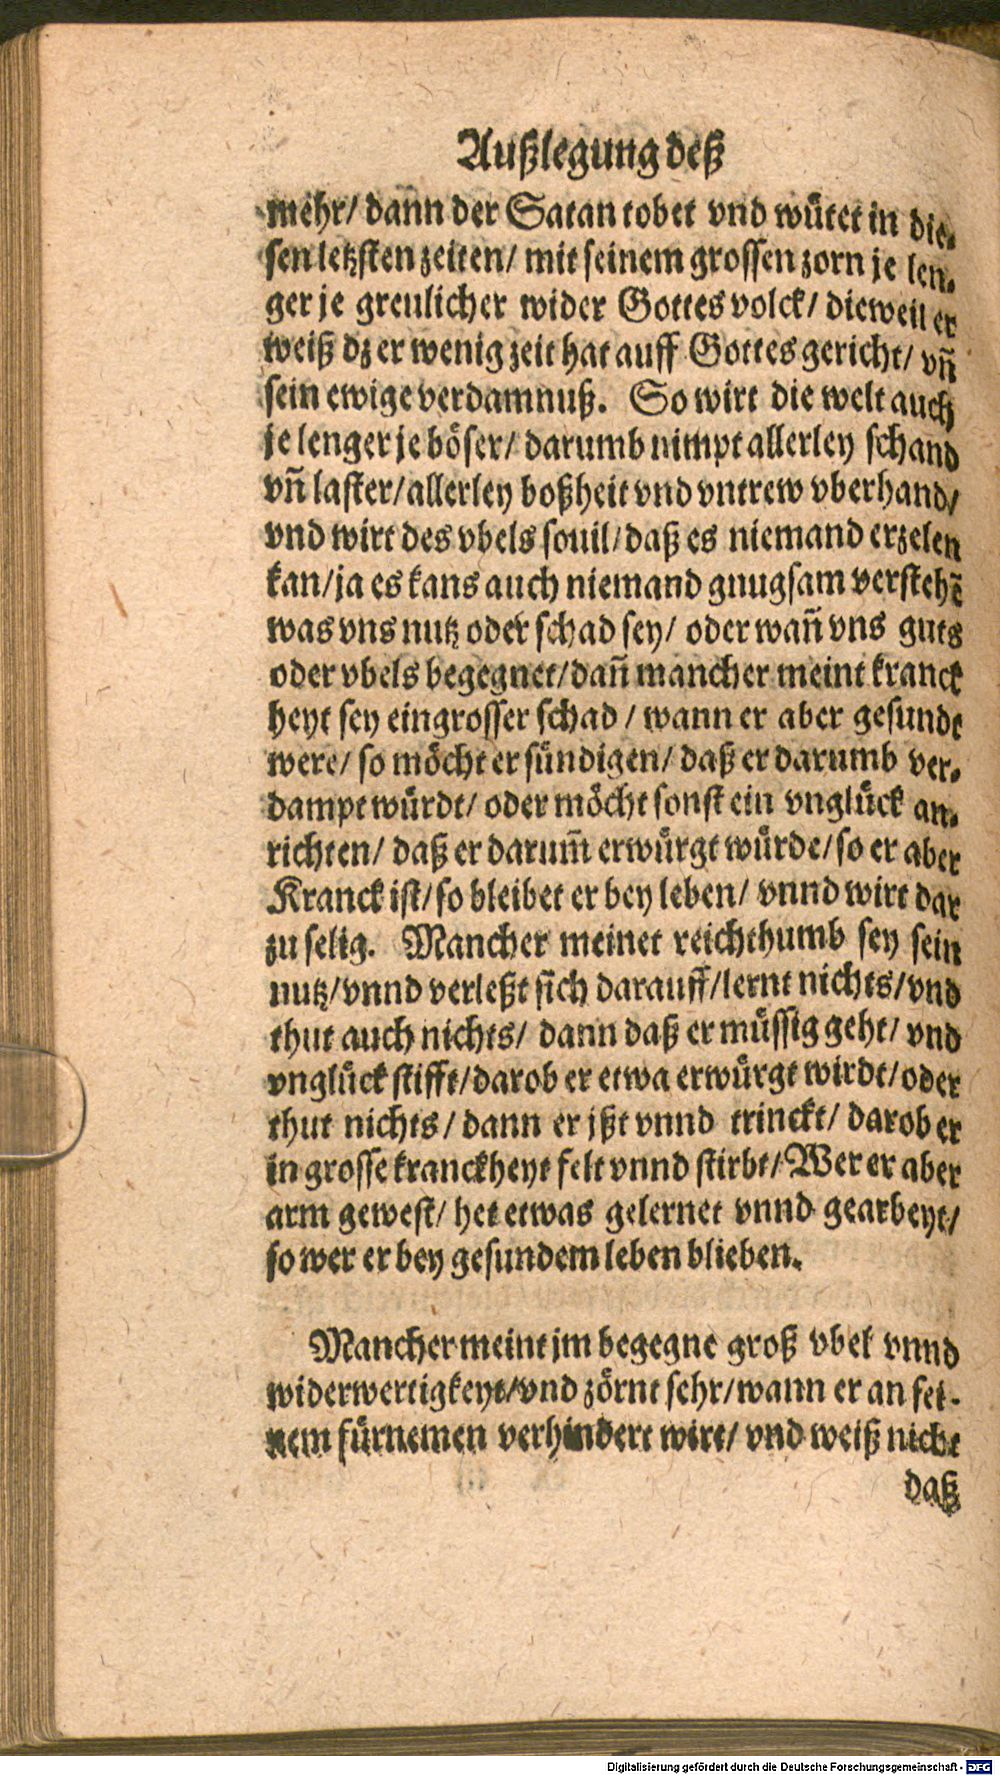 Außlegung deß
mehr/ dann der Satan tobet vnd wütet in die-
sen letzsten zeiten/ mit seinem grossen zorn je len-
ger je greulicher wider Gottes volck/ dieweil er
weiß dz er wenig zeit hat auff Gottes gericht/ vñ
sein ewige verdamnuß. So wirt die welt auch
je lenger je böser/ darumb nimpt allerley schand
vñ laster/ allerley boßheit vnd vntrew vberhand/
vnd wirt des vbels souil/ daß es niemand erzelen
kan/ ja es kans auch niemand gnugsam verstehẽ
was vns nutz oder schad sey/ oder wañ vns guts
oder vbels begegnet/ dañ mancher meint kranck
heyt sey ein grosser schad / wann er aber gesundt
were/ so möcht er sündigen/ daß er darumb ver-
dampt würdt/ oder möcht sonst ein vnglück an-
richten/ daß er darum̃ erwürgt würde/ so er aber
Kranck ist/ so bleibet er bey leben/ vnnd wirt dar
zu selig. Mancher meinet reichthumb sey sein
nutz/ vnnd verleßt sich darauff/ lernt nichts/ vnd
thut auch nichts/ dann daß er müssig geht/ vnd
vnglück stifft/ darob er etwa erwürgt wirdt/ oder
thut nichts/ dann er jßt vnnd trinckt/ darob er
in grosse kranckheyt felt vnnd stirbt/ Wer er aber
arm gewest/ het etwas gelernet vnnd gearbeyt/
so wer er bey gesundem leben blieben.
Mancher meint jm begegne groß vbel vnnd
widerwertigkeyt/ vnd zörnt sehr/ wann er an sei-
nem fürnemen verhindert wirt/ vnd weiß nicht
daß
Digitalisierung gefördert durch die Deutsche Forschungsgemeinschaft - DFG